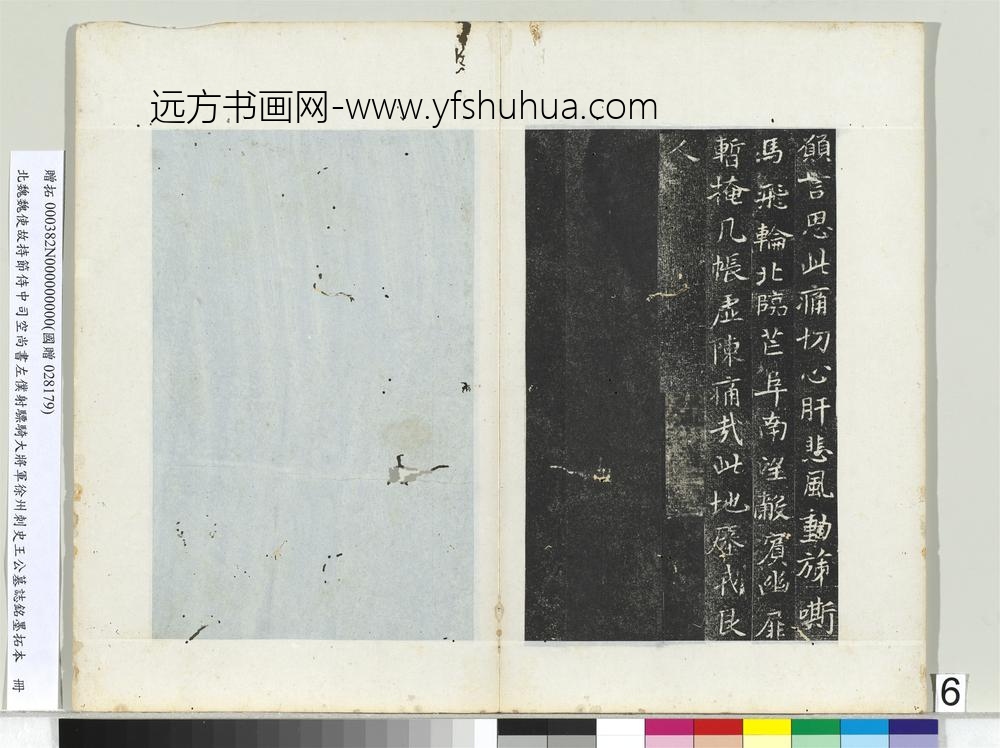 远方书画网-www.yfshuhua.com
願言思此痛切心肝悲風動旆嘶
馮飛輪北臨芒阜南望轂賓幽扉
暫掩几帳虛陳痛哉此地殲我良
人
贈拓 000382N000000000(國贈 028179)
北魏魏使故持節侍中司空尚書左僕射驃騎大將軍徐州刺史王公墓誌銘墨拓本 冊
6